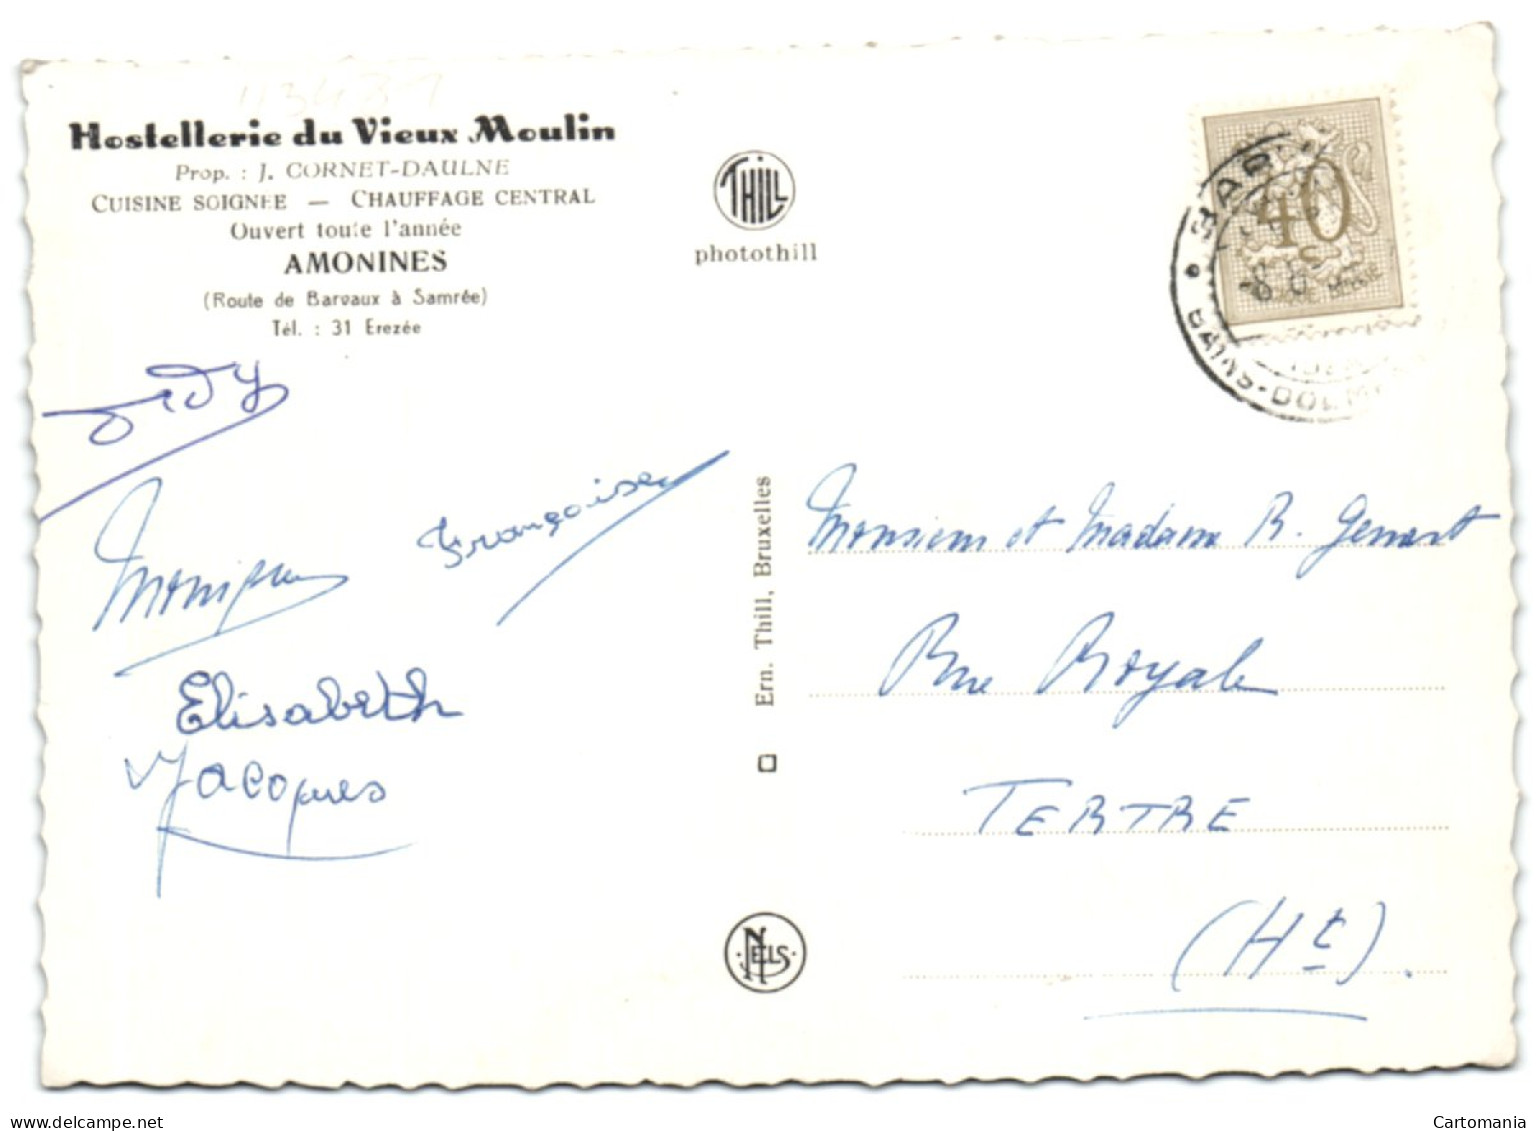 Hostellerie du Vieux Moulin
Prop. : J. CORNET-DAULNE
CUISINE SOIGNÉE — CHAUFFAGE CENTRAL
Ouvert toute l'année
AMONINES
(Route de Barvaux à Samrée)
Tél. : 31 Erezée
THILL
photothill
40
BAINS-DOU
Françoise
Monique
Elisabeth
Jacques
Ern. Thill, Bruxelles
NELS
Monsieur et Madame R. Genart
Rue Royale
TERTRE
(Ht).
delcampe.net
Cartomania